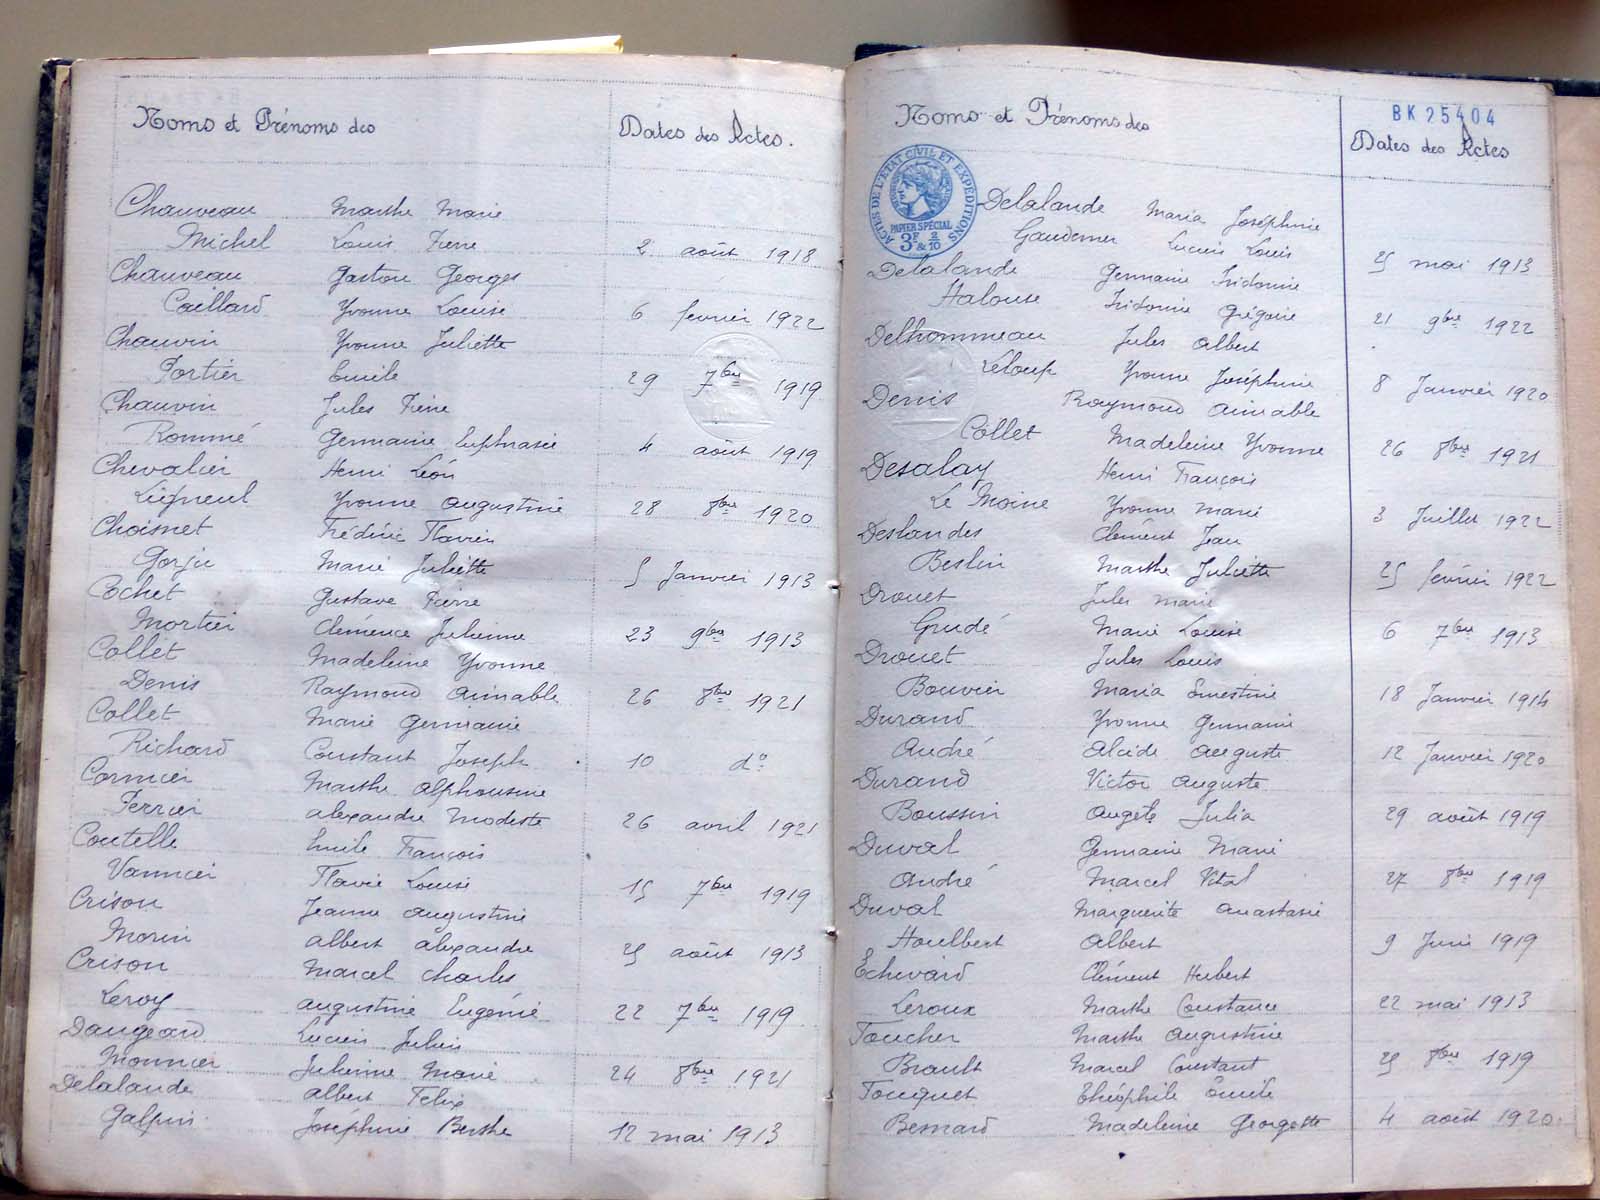 Noms et Prénoms des Dates des Actes.
Chauveau Marthe Marie
Michel Louis Pierre 2 août 1918
Chauveau Gaston Georges
Caillard Yvonne Louise 6 fevrier 1922
Chauvin Yvonne Juliette
Portier Emile 29 7bre 1919
Chauvin Jules Pierre
Rommé Germaine Euphrasie 4 août 1919
Chevalier Henri Léon
Liépneul Yvonne Augustine 28 8bre 1920
Choisnet Frédéric Flavien
Gorju Marie Juliette 5 Janvier 1913
Cochet Gustave Pierre
Mortier Clémence Julienne 23 9bre 1913
Collet Madeleine Yvonne
Denis Raymond Aimable 26 8bre 1921
Collet Marie Germaine
Richard Constant Joseph 10 do
Cormier Marthe Alphonsine
Ferrier Alexandre Modeste 26 avril 1921
Coutelle Emile François
Vannier Flavie Louise 15 7bre 1919
Crison Jeanne Augustine
Morin Albert Alexandre 25 août 1913
Crison Marcel Charles
Leroy Augustine Eugénie 22 7bre 1919
Daugeard Lucien Julien
Monnier Julienne Marie 24 8bre 1921
Delalande Albert Félix
Galpin Joséphine Berthe 12 mai 1913
BK 25404
Noms et Prénoms des Dates des Actes
ACTES DE L'ETAT CIVIL ET EXPÉDITIONS
PAPIER SPÉCIAL
3F & 2/10
Delalande Maria Joséphine
Gaudemer Lucien Louis 25 mai 1913
Delalande Germaine Fridonie
Halouse Grégoire 21 9bre 1922
Delhommeau Jules Albert
Leloup Yvonne Joséphine 8 Janvier 1920
Denis Raymond Aimable
Collet Madeleine Yvonne 26 8bre 1921
Desalay Henri François
Le Moine Yvonne Marie 3 Juillet 1922
Deslandes Clément Jean
Beslin Marthe Juliette 25 février 1922
Drouet Jules Marie
Grudé Marie Louise 6 7bre 1913
Drouet Jules Louis
Bouvier Maria Ernestine 18 Janvier 1914
Durand Yvonne Germaine
André Alcide Auguste 12 Janvier 1920
Durand Victor Auguste
Boussin Angèle Julia 29 août 1919
Duval Germaine Marie
André Marcel Vital 27 8bre 1919
Duval Marguerite Anastasie
Houlbert Albert 9 Juin 1919
Echivard Clément Herbert
Leroux Marthe Constance 22 mai 1913
Foucher Marthe Augustine
Brault Marcel Constant 25 8bre 1919
Fouquet Théophile Émile
Besnard Madeleine Georgette 4 août 1920.